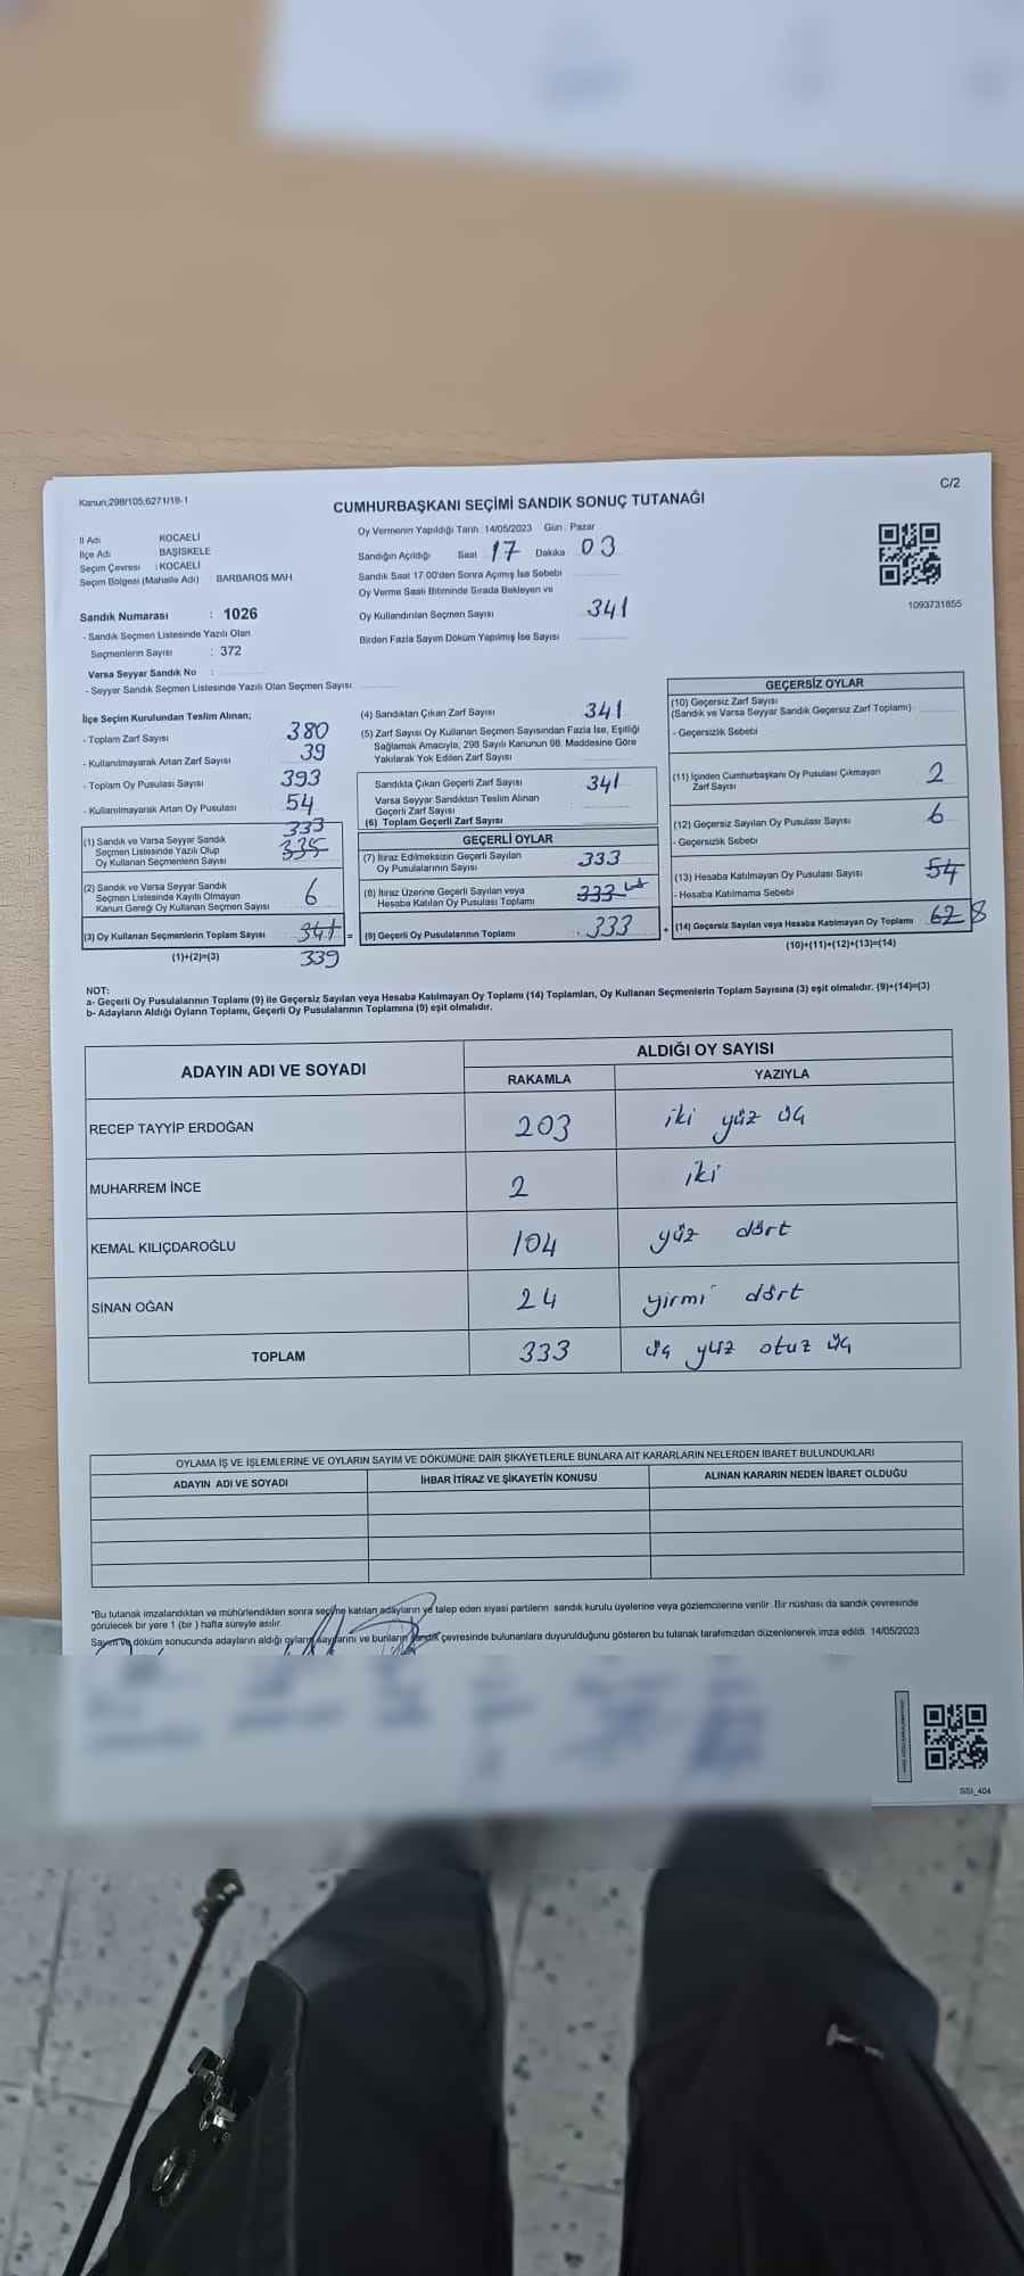 Kanun;298/105,6271/19-1
C/2
CUMHURBAŞKANI SEÇİMİ SANDIK SONUÇ TUTANAĞI
İl Adı KOCAELİ
İlçe Adı BAŞİSKELE
Seçim Çevresi : KOCAELİ
Seçim Bölgesi (Mahalle Adı) : BARBAROS MAH
Sandık Numarası : 1026
- Sandık Seçmen Listesinde Yazılı Olan
Seçmenlerin Sayısı : 372
Varsa Seyyar Sandık No :
- Seyyar Sandık Seçmen Listesinde Yazılı Olan Seçmen Sayısı
Oy Vermenin Yapıldığı Tarih 14/05/2023 Gün : Pazar
Sandığın Açıldığı Saat 17 Dakika 03
Sandık Saat 17:00'den Sonra Açımış İse Sebebi
Oy Verme Saati Bitiminde Sırada Bekleyen ve
Oy Kullandırılan Seçmen Sayısı 341
Birden Fazla Sayım Döküm Yapılmış İse Sayısı
1093731855
İlçe Seçim Kurulundan Teslim Alınan;
- Toplam Zarf Sayısı 380
- Kullanılmayarak Artan Zarf Sayısı 39
- Toplam Oy Pusulası Sayısı 393
- Kullanılmayarak Artan Oy Pusulası 54
333
(1) Sandık ve Varsa Seyyar Sandık
Seçmen Listesinde Yazılı Olup
Oy Kullanan Seçmenlerin Sayısı 335
(2) Sandık ve Varsa Seyyar Sandık
Seçmen Listesinde Kayıtlı Olmayan
Kanun Gereği Oy Kullanan Seçmen Sayısı 6
(3) Oy Kullanan Seçmenlerin Toplam Sayısı 341 =
(1)+(2)=(3) 339
(4) Sandıktan Çıkan Zarf Sayısı 341
(5) Zarf Sayısı Oy Kullanan Seçmen Sayısından Fazla İse, Eşitliği
Sağlamak Amacıyla, 298 Sayılı Kanunun 98. Maddesine Göre
Yakılarak Yok Edilen Zarf Sayısı
Sandıkta Çıkan Geçerli Zarf Sayısı 341
Varsa Seyyar Sandıktan Teslim Alınan
Geçerli Zarf Sayısı
(6) Toplam Geçerli Zarf Sayısı
GEÇERLİ OYLAR
(7) İtiraz Edilmeksizin Geçerli Sayılan
Oy Pusulalarının Sayısı 333
(8) İtiraz Üzerine Geçerli Sayılan veya
Hesaba Katılan Oy Pusulası Toplamı 333
(9) Geçerli Oy Pusulalarının Toplamı 333 +
GEÇERSİZ OYLAR
(10) Geçersiz Zarf Sayısı
(Sandık ve Varsa Seyyar Sandık Geçersiz Zarf Toplamı)
- Geçersizlik Sebebi
(11) İçinden Cumhurbaşkanı Oy Pusulası Çıkmayan
Zarf Sayısı 2
(12) Geçersiz Sayılan Oy Pusulası Sayısı 6
- Geçersizlik Sebebi
(13) Hesaba Katılmayan Oy Pusulası Sayısı 54
- Hesaba Katılmama Sebebi
(14) Geçersiz Sayılan veya Hesaba Katılmayan Oy Toplamı 62 8
(10)+(11)+(12)+(13)=(14)
NOT:
a- Geçerli Oy Pusulalarının Toplamı (9) ile Geçersiz Sayılan veya Hesaba Katılmayan Oy Toplamı (14) Toplamları, Oy Kullanan Seçmenlerin Toplam Sayısına (3) eşit olmalıdır. (9)+(14)=(3)
b- Adayların Aldığı Oyların Toplamı, Geçerli Oy Pusulalarının Toplamına (9) eşit olmalıdır.
ADAYIN ADI VE SOYADI
ALDIĞI OY SAYISI
RAKAMLA YAZIYLA
RECEP TAYYİP ERDOĞAN 203 iki yüz üç
MUHARREM İNCE 2 iki
KEMAL KILIÇDAROĞLU 104 yüz dört
SİNAN OĞAN 24 yirmi dört
TOPLAM 333 üç yüz otuz üç
OYLAMA İŞ VE İŞLEMLERİNE VE OYLARIN SAYIM VE DÖKÜMÜNE DAİR ŞİKAYETLERLE BUNLARA AİT KARARLARIN NELERDEN İBARET BULUNDUKLARI
ADAYIN ADI VE SOYADI İHBAR İTİRAZ VE ŞİKAYETİN KONUSU ALINAN KARARIN NEDEN İBARET OLDUĞU
*Bu tutanak imzalandıktan ve mühürlendikten sonra seçime katılan adayların ve talep eden siyasi partilerin sandık kurulu üyelerine veya gözlemcilerine verilir. Bir nüshası da sandık çevresinde
görülecek bir yere 1 (bir) hafta süreyle asılır.
Sayım ve döküm sonucunda adayların aldığı oyların sayılarını ve bunların sandık çevresinde bulunanlara duyurulduğunu gösteren bu tutanak tarafımızdan düzenlenerek imza edildi. 14/05/2023